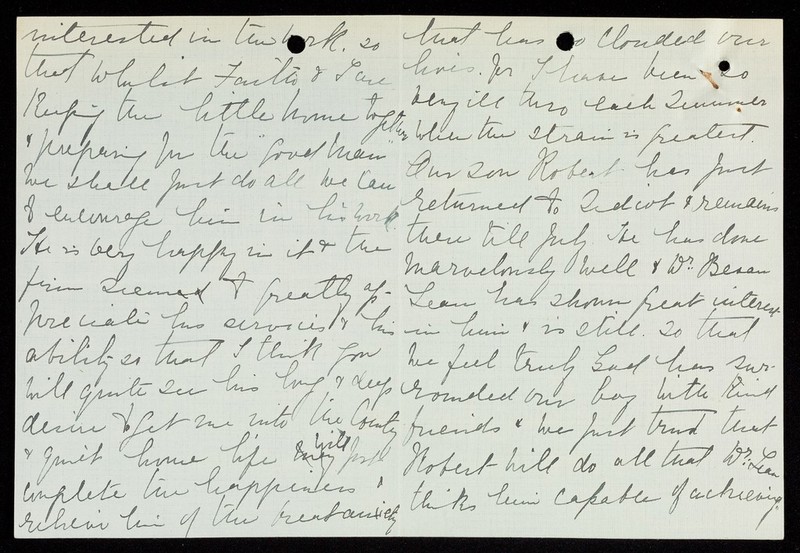 interested in the work. so
that whilst Faith & I are
Keeping the little home together
& "preparing for the good Man"
We shall just do all we can
to encourage him in his work.
He is very happy in it & the
firm seemed to greatly ap-
preciate his services & his
ability so that I think you
will quite see his long & deep
desire to get me into the County
& quiet home life will just
complete the happiness &
relieve him of the great anxiety
that has so clouded our
lives. for I have been so
very ill thro each Summer
When the strain is greatest.
Our son Robert has just
returned to & remains
there till July. He has done
Marvelously Well & Dr. Bevan
Lean has shown great interest
in him & is still. so that
We feel truly God has sur-
rounded our boy with Kind
friends & We just trust that
Robert will do all that Dr. Lean
thinks him capable of achieving.